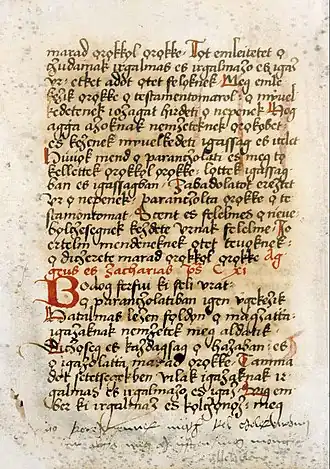 marad ǫrǫkkǫl ǫrǫkke · Tǫt emleǐtetet ǫ
čudaǐnak irgalmas es irgalmazo es igaz
vr · etket adǫt ǫtet feloknek Meg emle
kǫzik ǫrǫkke ǫ testamentomarol · ǫ mÿuel
kedetenek iozagat hirdeti ǫ nepenek Hog
agga azoknak nemzeteknek ǫrǫkǫbet
es kezenek mÿuelkedeti igassag es itelet
Hiuǫk mend ǫ parančolati es meg tǫ
kellettek ǫrǫkkǫl ǫrǫkke · lǫttek igassag
ban es igassagban · Zabadolatot ereztet
vr ǫ nepenek · parančolta ǫrǫkke ǫ te
stamentomat · Zcent es felelmes ǫ neue
bǫlčesegnek kezdete vrnak felelme · Io
ertelm mendeneknek ǫtet teuǫknek ·
ǫ dičerete marad ǫrǫkkǫl ǫrǫkke Ag
geus es Zacharias ps C XI
Bodog ferfiu ki feli vrat ·
ǫ parančolatiban igen vgekezik
Hatalmas lezen fǫldǫn ǫ magzatta ·
igazaknak nemzetek meg aldatik
Dičǫseg es kazdagsag ǫ hazaban · es
ǫ igazolatta marad ǫrǫkke · Tamma
dot setetsegekben vilak igazaknak ir ·
galmas es irgalmazo es igaz · Vig em
ber ki irgalmaz es kǫlčǫnoz · meg